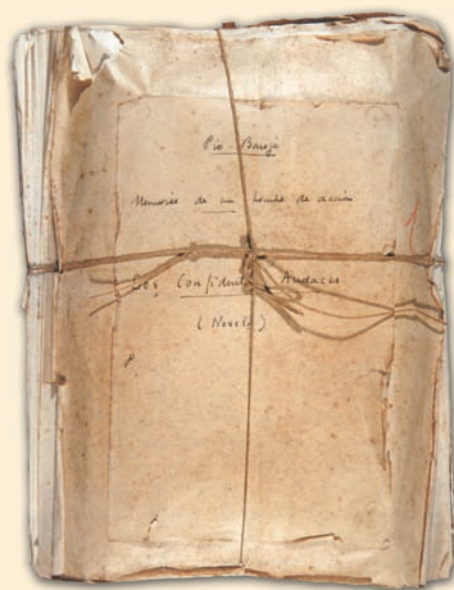 Pío Baroja
Memorias de un hombre de acción
Los Confidentes Audaces
(Novela)